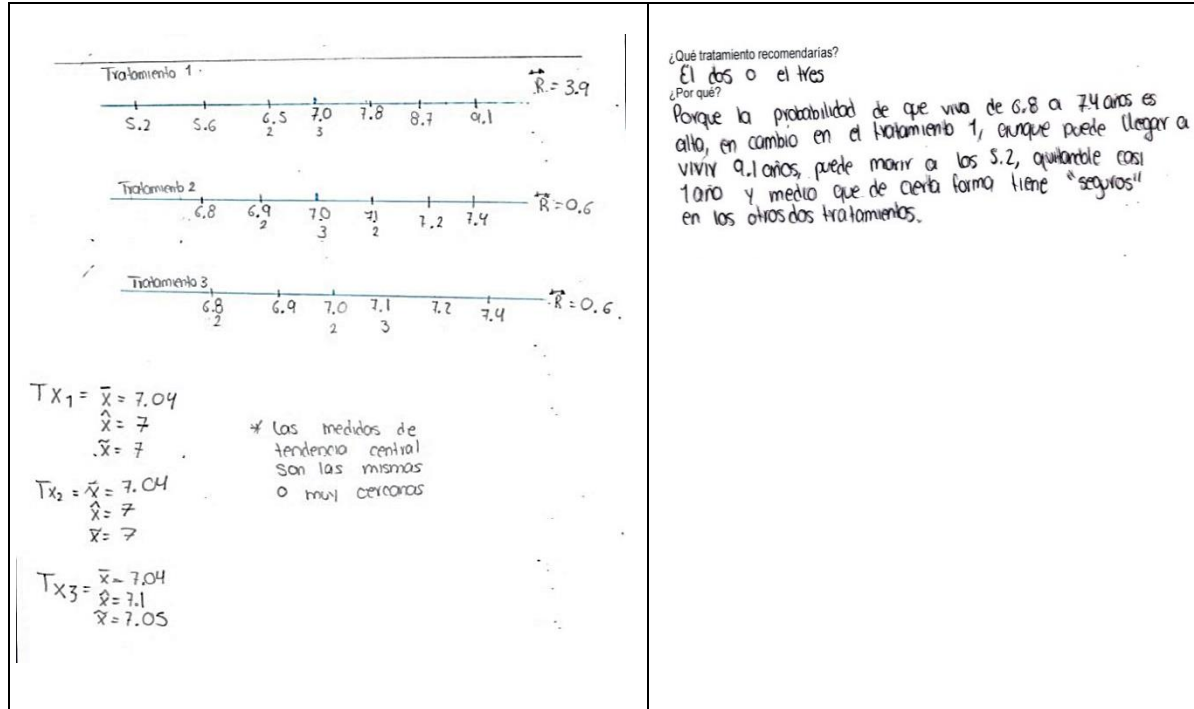 Tratamiento 1.
R = 3.9
5.2 5.6 6.5 7.0 7.8 8.7 9.1
2 3
Tratamiento 2
R = 0.6
6.8 6.9 7.0 7.1 7.2 7.4
2 3 2
Tratamiento 3
R = 0.6.
6.8 6.9 7.0 7.1 7.2 7.4
2 2 3
Tx1 = x̄ = 7.04
x̂ = 7
x̃ = 7
Tx2 = x̄ = 7.04
x̂ = 7
x̃ = 7
Tx3 = x̄ = 7.04
x̂ = 7.1
x̃ = 7.05
* las medidas de
tendencia central
son las mismas
o muy cercanas
¿Qué tratamiento recomendarías?
El dos o el tres
¿Por qué?
Porque la probabilidad de que viva de 6.8 a 7.4 años es
alta, en cambio en el tratamiento 1, aunque puede llegar a
vivir 9.1 años, puede morir a los 5.2, quitandole casi
1 año y medio que de cierta forma tiene "seguros"
en los otros dos tratamientos.